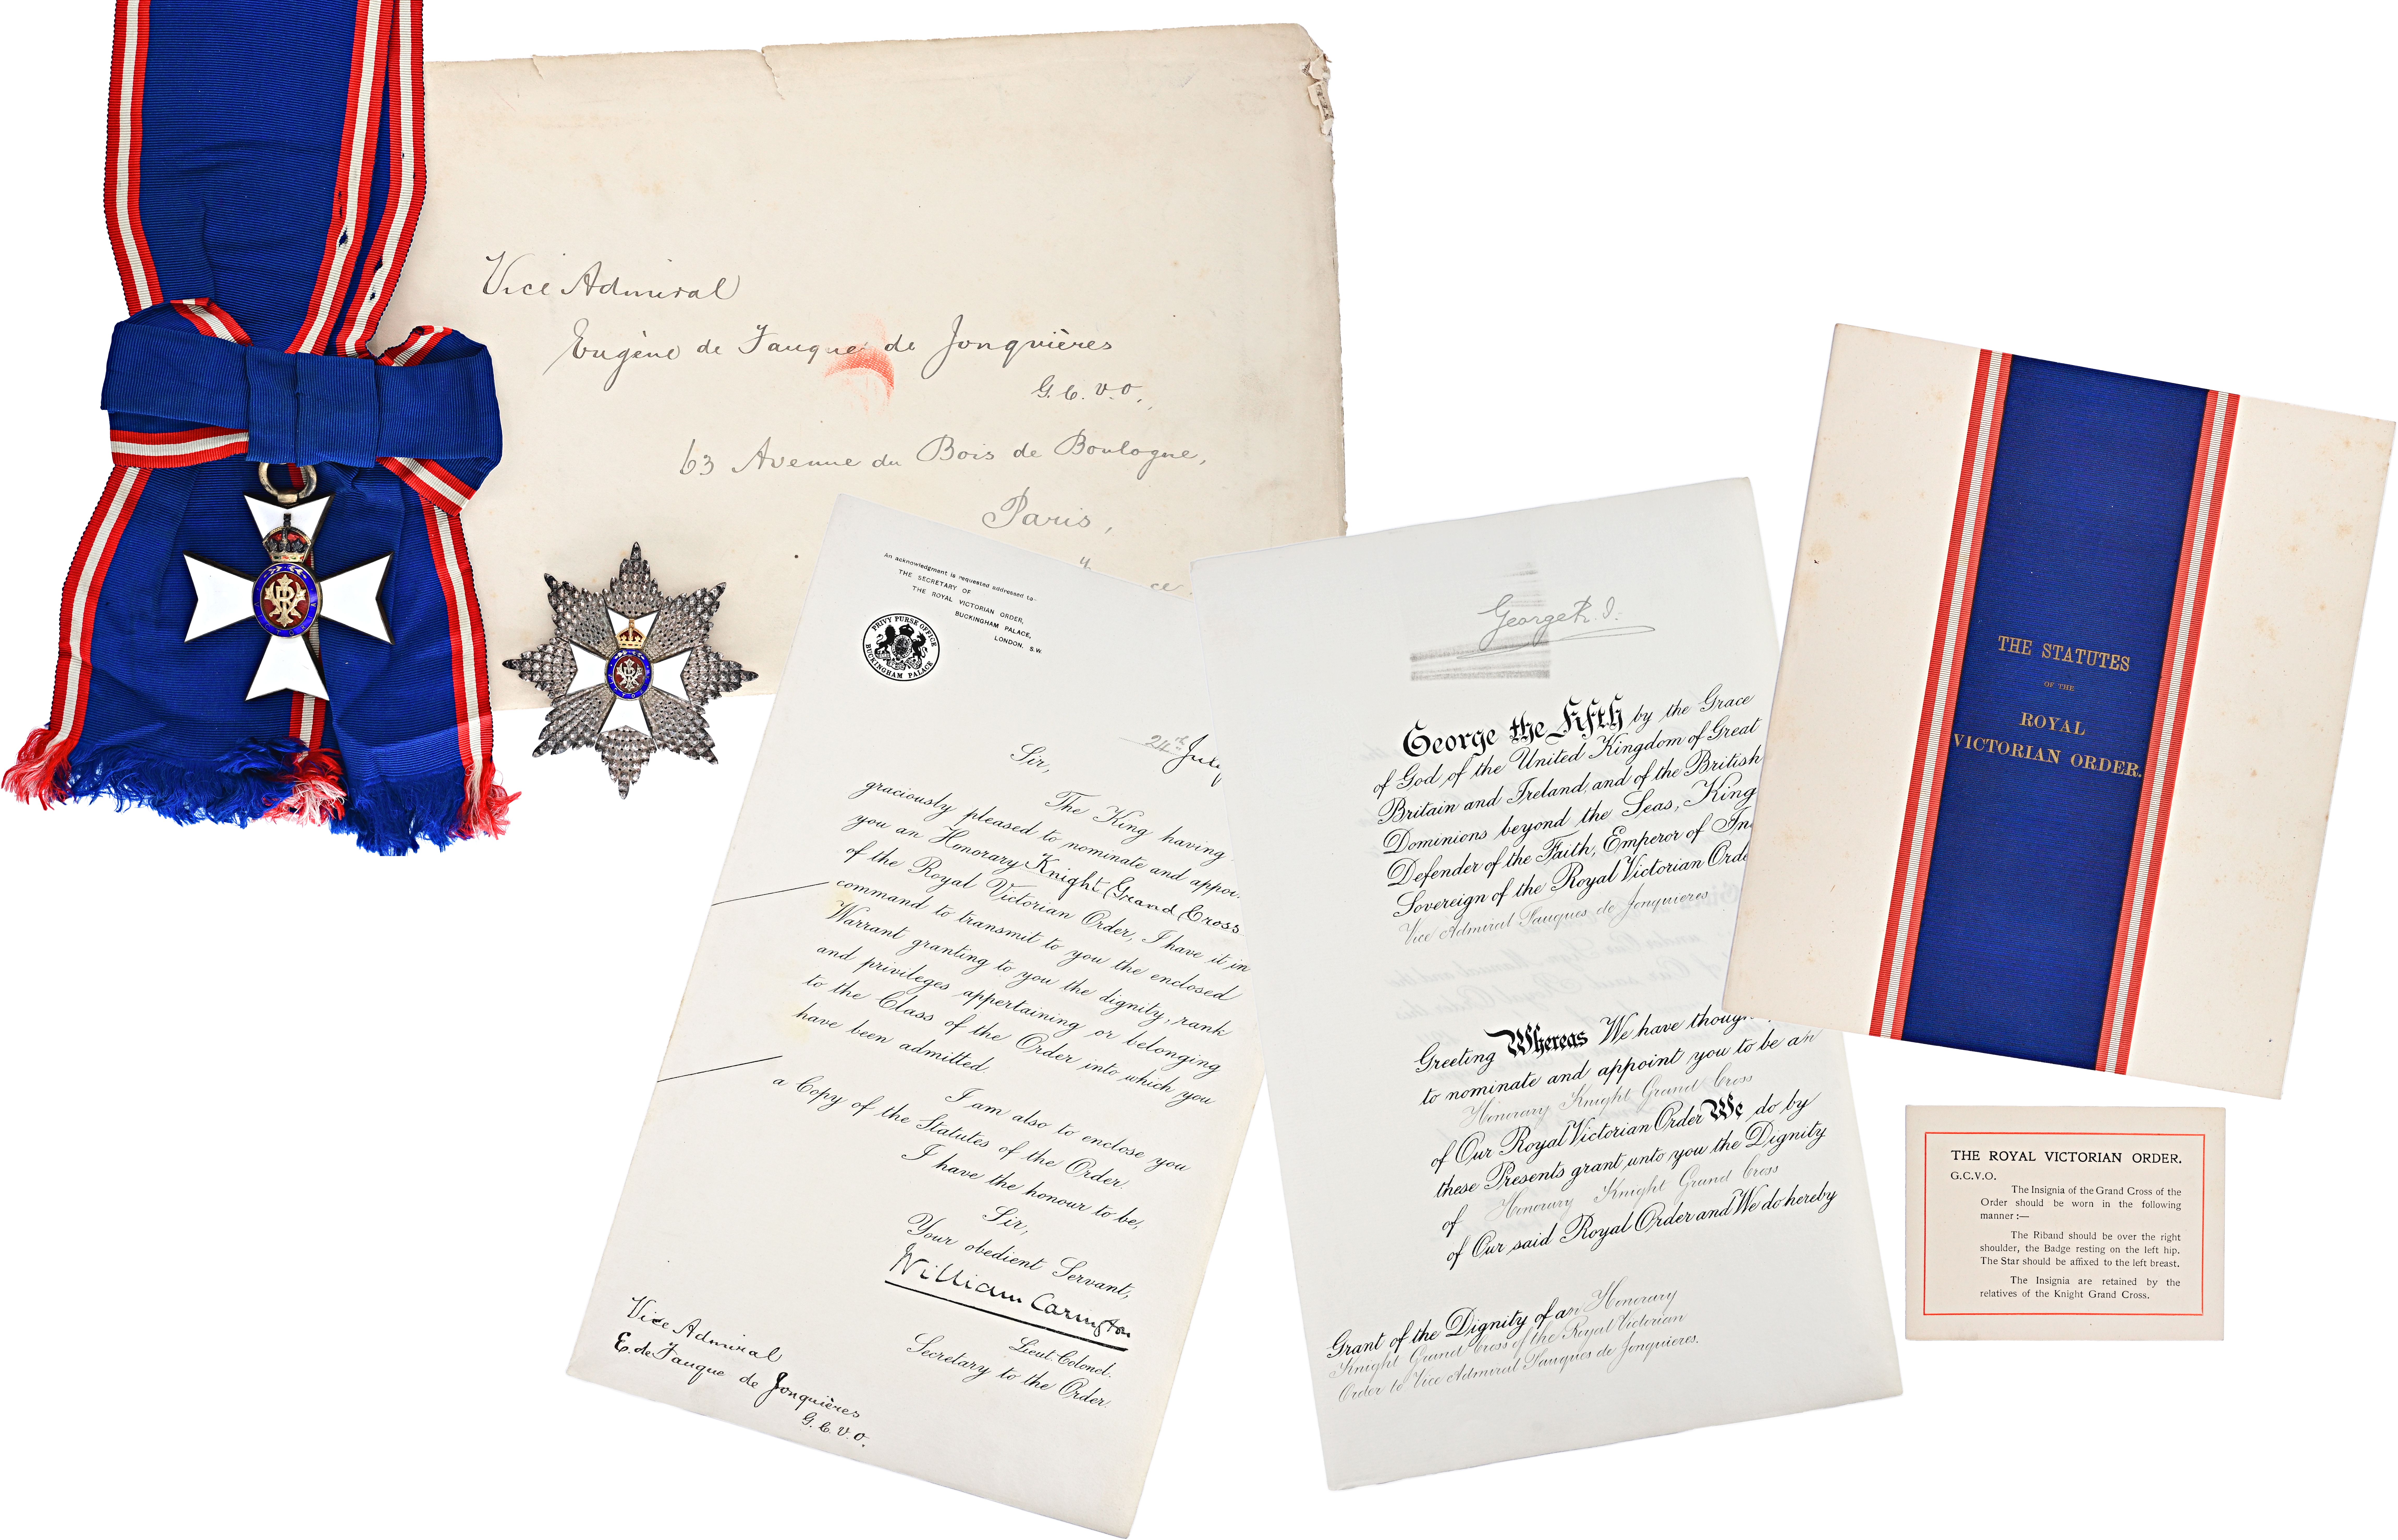 Vice Admiral
Eugène de Fauque de Jonquières
G.C.V.O.,
63 Avenue du Bois de Boulogne,
Paris,
An acknowledgment is requested addressed to-
THE SECRETARY OF
THE ROYAL VICTORIAN ORDER,
BUCKINGHAM PALACE,
LONDON, S.W
PRIVY PURSE OFFICE
BUCKINGHAM PALACE
24th July
Sir,
The King having
graciously pleased to nominate and
you an Honorary Knight Grand Cross
of the Royal Victorian Order, I have it in
command to transmit to you the enclosed
Warrant granting to you the dignity, rank
and privileges appertaining or belonging
to the Class of the Order into which you
have been admitted.
I am also to enclose you
a Copy of the Statutes of the Order.
I have the honour to be,
Sir,
Your obedient Servant,
William Carington
Lieut. Colonel.
Secretary to the Order.
Vice Admiral
E. de Fauque de Jonquières
G.C.V.O.
George R.I.
George the Fifth by the Grace
of God of the United Kingdom of Great
Britain and Ireland, and of the British
Dominions beyond the Seas, King
Defender of the Faith, Emperor of
Sovereign of the Royal Victorian
Vice Admiral Fauques de Jonquieres
Greeting Whereas We have
to nominate and appoint you to be an
Honorary Knight Grand Cross
of Our Royal Victorian Order We do by
these Presents grant unto you the Dignity
of Honorary Knight Grand Cross
of Our said Royal Order and We do hereby
Grant of the Dignity of an Honorary
Knight Grand Cross of the Royal Victorian
Order to Vice Admiral Fauques de Jonquieres.
THE STATUTES
OF THE
ROYAL
VICTORIAN ORDER.
THE ROYAL VICTORIAN ORDER.
G.C.V.O.
The Insignia of the Grand Cross of the
Order should be worn in the following
manner :—
The Riband should be over the right
shoulder, the Badge resting on the left hip.
The Star should be affixed to the left breast.
The Insignia are retained by the
relatives of the Knight Grand Cross.